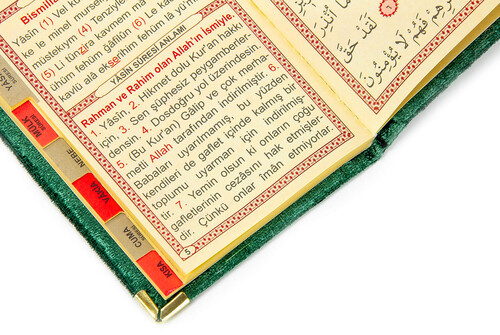 Bismill
Yâsîn (1) Vel
ke le minel mursel
müstekıym (4) Tenziyle
(5) Li tünzira kavmem mâ
ühüm fehüm ğâfilûn (6) Le k
kavlü alâ ekserihim fehüm lâ yü'm
YÂSİN SÛRESİ ANLAMI
Rahman ve Rahim olan Allah'ın ismiyle.
1. Yâsîn. 2. Hikmet dolu Kur'an hakkı
için. 3. Sen şüphesiz peygamberler-
densin. 4. Dosdoğru yol üzerindesin.
5. (Bu Kur'an) Gâlip ve çok merha-
metli Allah tarafından indirilmiştir. 6.
Babaları uyarılmamış, bu yüzden
kendileri de gaflet içinde kalmış bir
toplumu uyarman için indirilmiş-
tir. 7. Yemin olsun ki onların çoğu
gafletlerinin cezâsını hak etmişler-
dir. Çünkü onlar îman etmiyorlar.
5
YÂSİN
SÛRESİ
MÜLK
SÛRESİ
NEBE
VÂKIA
CUMA
SÛRESİ
KISA
لَقَدْ حَقَّ
فَهُمْ لَا يُؤْمِنُونَ